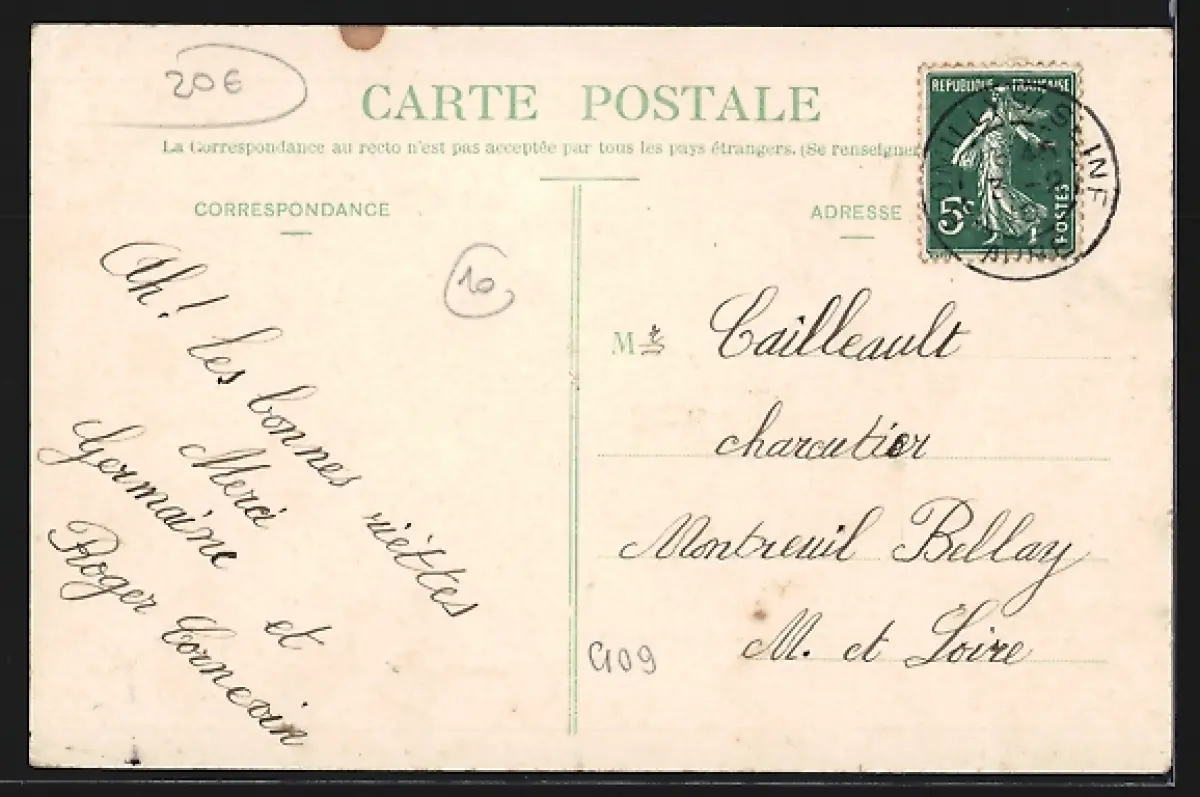 20€
CARTE POSTALE
La Correspondance au recto n'est pas acceptée par tous les pays étrangers. (Se renseigner
REPUBLIQUE FRANÇAISE
5c
POSTES
INF
AUBE
CORRESPONDANCE
ADRESSE
10
Ah! les bonnes riettes
Merci
Germaine et
Roger Cornevin
M Cailleault
charcutier
Montreuil Bellay
M. et Loire
G109